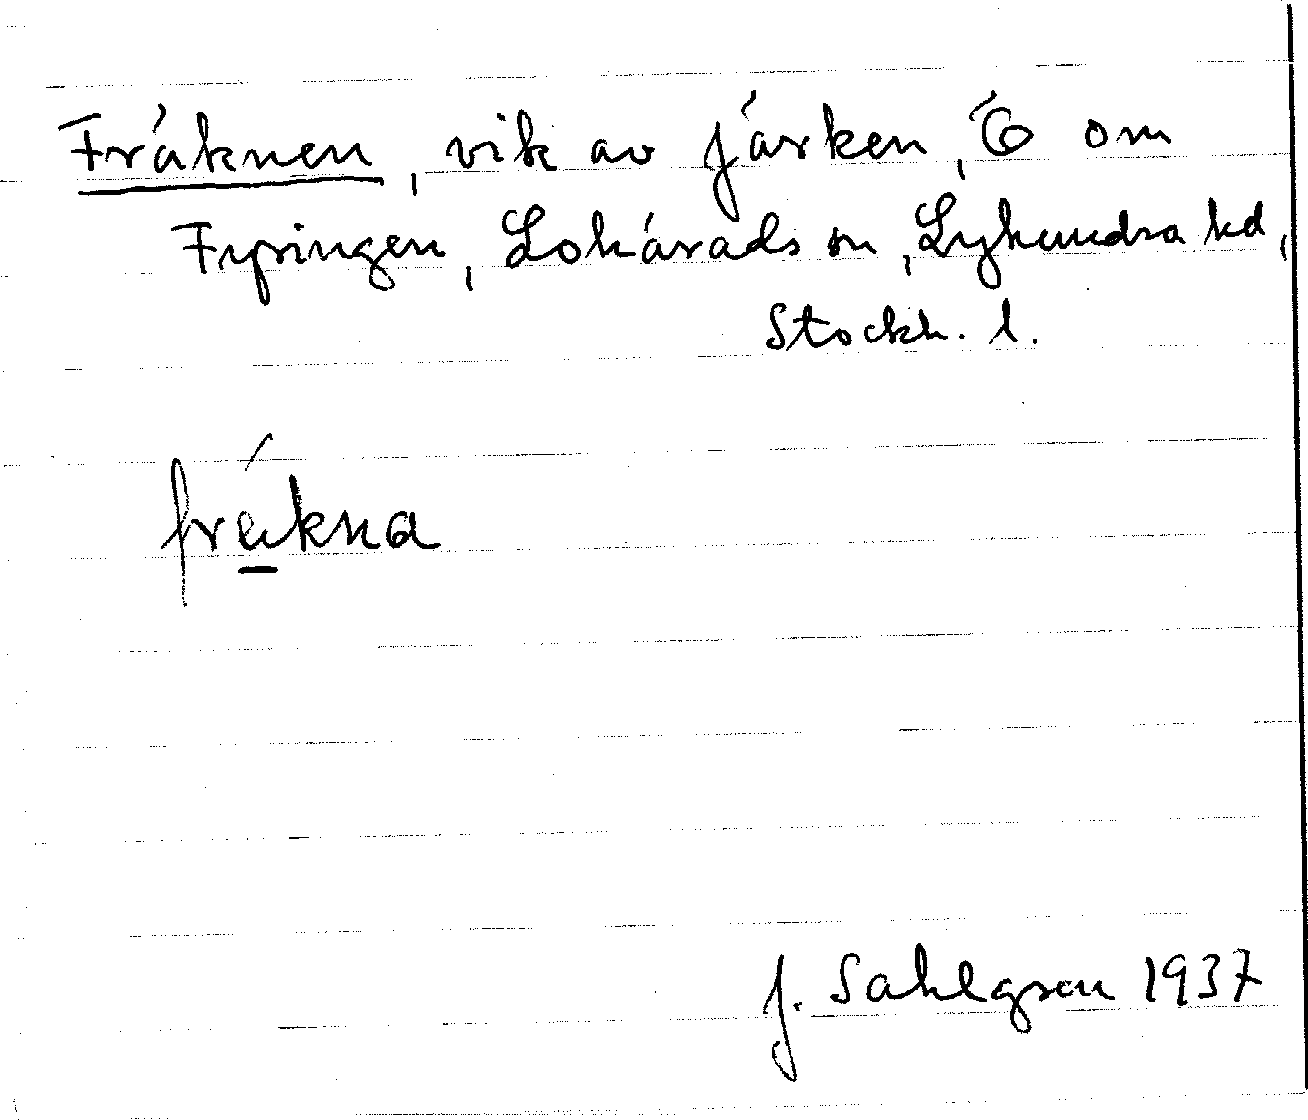 Fräknen, vik av Järken, Ö om
Fysingen, Lohärads sn, Lyhundra hd,
Stockh. l.
fräkna
J. Sahlgren 1937